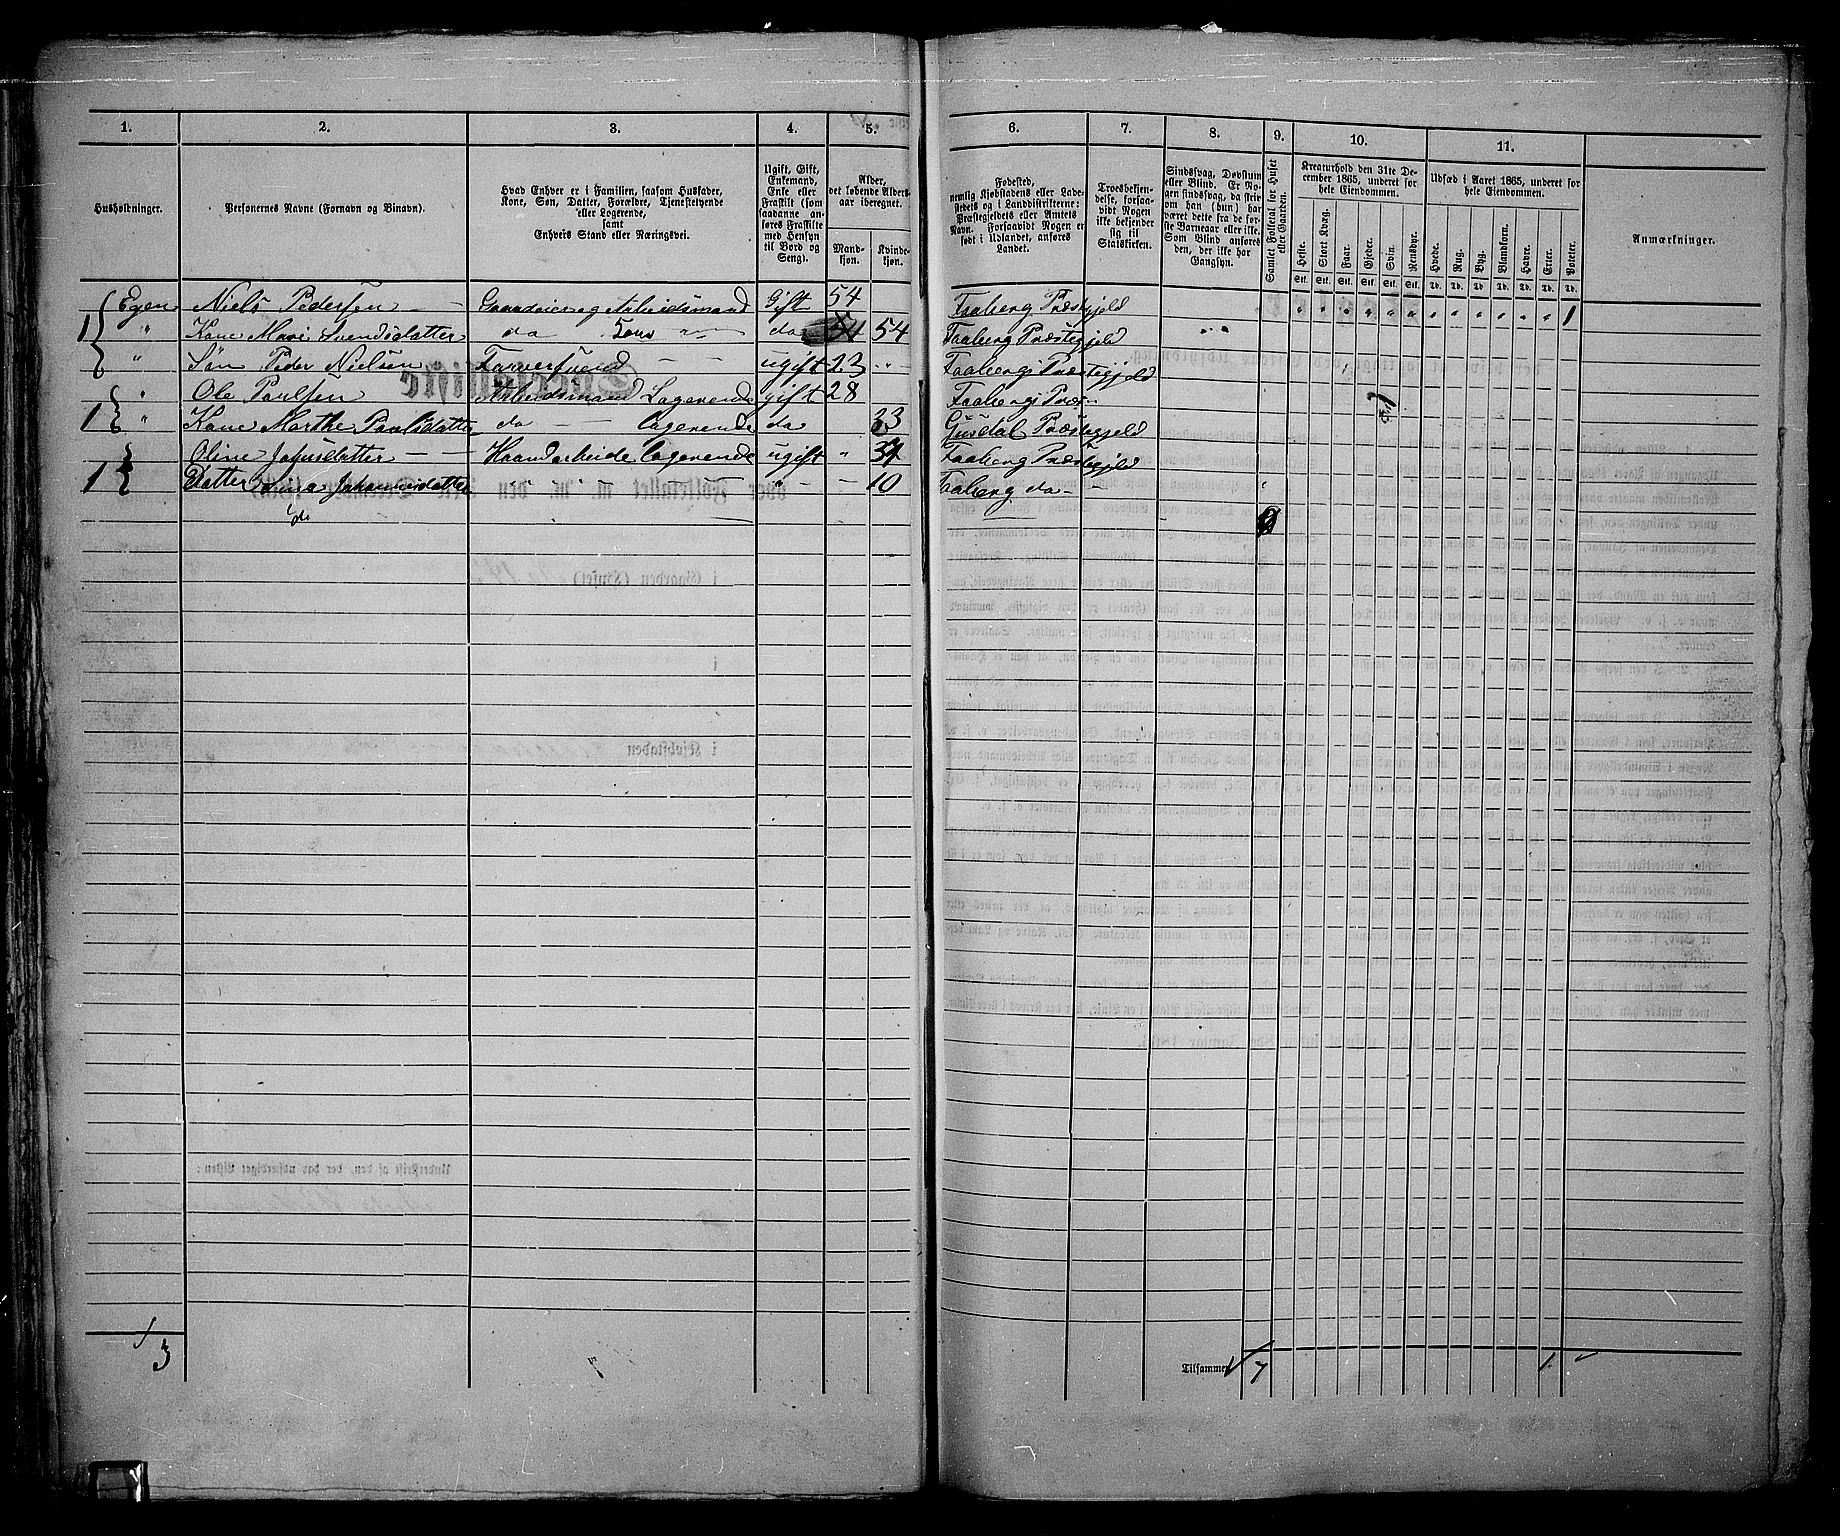 1. 2. 3. 4. 5. 6. 7. 8. 9. 10. 11.
Husholdninger.
Personernes Navne (Fornavn og Binavn).
Hvad Enhver er i Familien, saasom Husfader,
Kone, Søn, Datter, Forældre, Tjenestetyende
eller Logerende,
samt
Enhvers Stand eller Næringsvei.
Ugift, Gift,
Enkemand,
Enke eller
Fraskilt (som
saadanne an-
føres Fraskilte
med Hensyn
til Bord og
Seng).
Alder,
det løbende Alders-
aar iberegnet.
Mand-
kjøn.
Kvinde-
kjøn.
Fødested,
nemlig Kjøbstadens eller Lade-
stedets og i Landdistrikterne:
Præstegjeldets eller Amtets
Navn. Forsaavidt Nogen er
født i Udlandet, anføres
Landet.
Troesbekjen-
delse, forsaa-
vidt Nogen
ikke bekjender
sig til
Statskirken.
Sindssvag, Døvstum
eller Blind. Er No-
gen sindssvag, da skrives
om han (hun) har
været dette fra de før-
ste Barneaar eller ikke.
Som Blind anføres
den, der ikke har
Gangsyn.
Samlet Folketal for Huset
eller Gaarden.
Kreaturhold den 31te De-
cember 1865, underet for
hele Eiendommen.
Heste. Stort Kvæg. Faar. Gjeder. Svin. Rensdyr.
Stk. Stk. Stk. Stk. Stk. Stk.
Udsæd i Aaret 1865, underet for
hele Eiendommen.
Hvede. Rug. Byg. Blandkorn. Havre. Erter. Poteter.
Td. Td. Td. Td. Td. Td. Td.
Anmærkninger.
Egen Niels Pedersen Gaardeier og Arbeidsmand Gift 54 Faaberg Præstegjeld 1
1 " Kone Mari Svendsdatter do do 54 54 Faaberg Præstegjeld
" Søn Peder Nielsen Farversvend ugift 23 Faaberg Præstegjeld
" Ole Paulsen Arbeidsmand Logerende gift 28 Faaberg Præs
1 " Kone Marthe Paulsdatter do logerende do 33 Gusdal Præstegjeld
Oline Johnsdatter Haandarbeide logerende ugift " 34 Faaberg Præstegjeld
1 Datter Lina Johannesdatter " 10 Faaberg do
1/3
Tilsammen 7 1